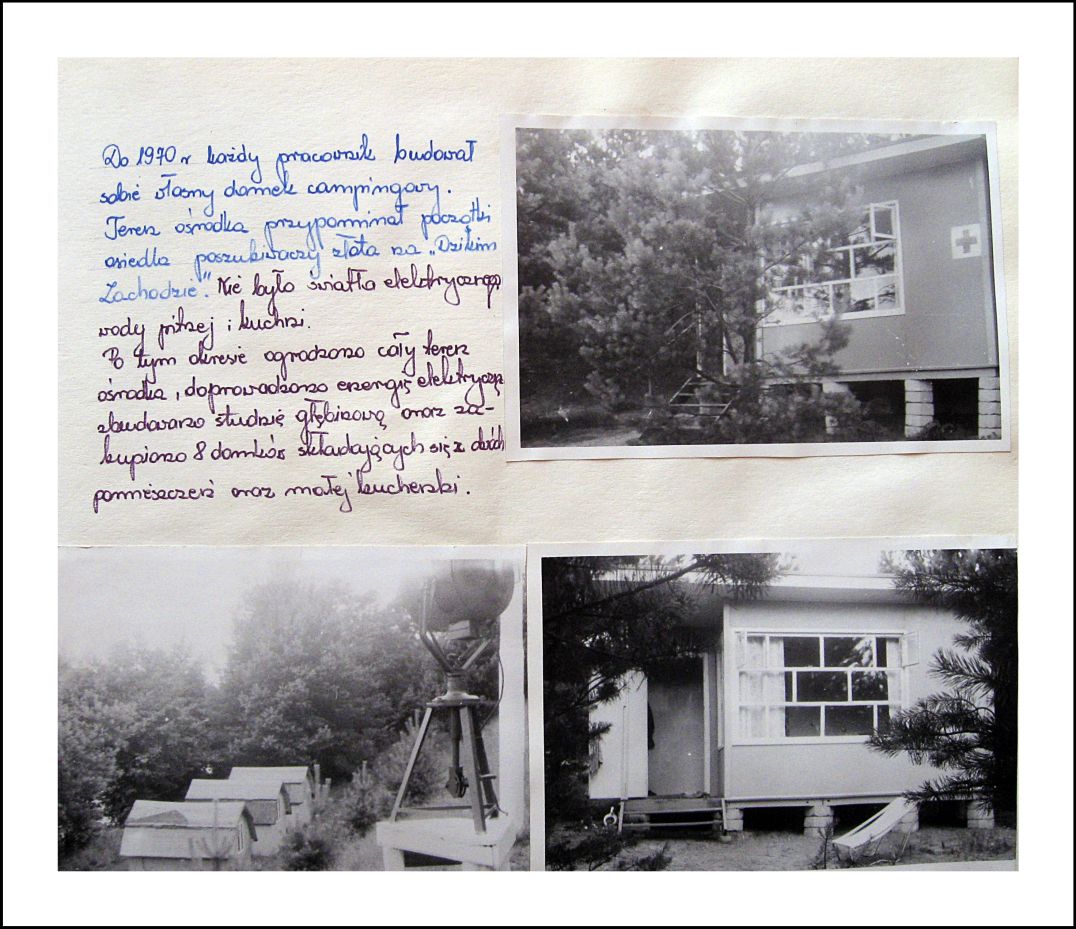 Do 1970 r każdy pracownik budował
sobie własny domek campingowy.
Teren ośrodka przypominał początki
osiedla poszukiwaczy złota na „Dzikim
Zachodzie". Nie było światła elektrycznego
wody pitnej i kuchni.
Po tym okresie ogrodzono cały teren
ośrodka, doprowadzono energię elektryczną
zbudowano studnię głębinową oraz za-
kupiono 8 domków składających się z dwóch
pomieszczeń oraz małej kuchenki.